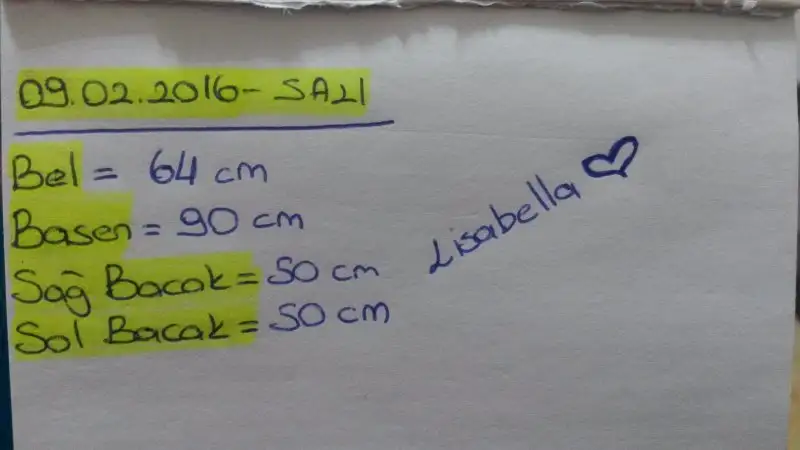 09.02.2016- SALI
Bel = 64 cm
Basen = 90 cm
Sağ Bacak = 50 cm
Sol Bacak = 50 cm
Lisabella ♡